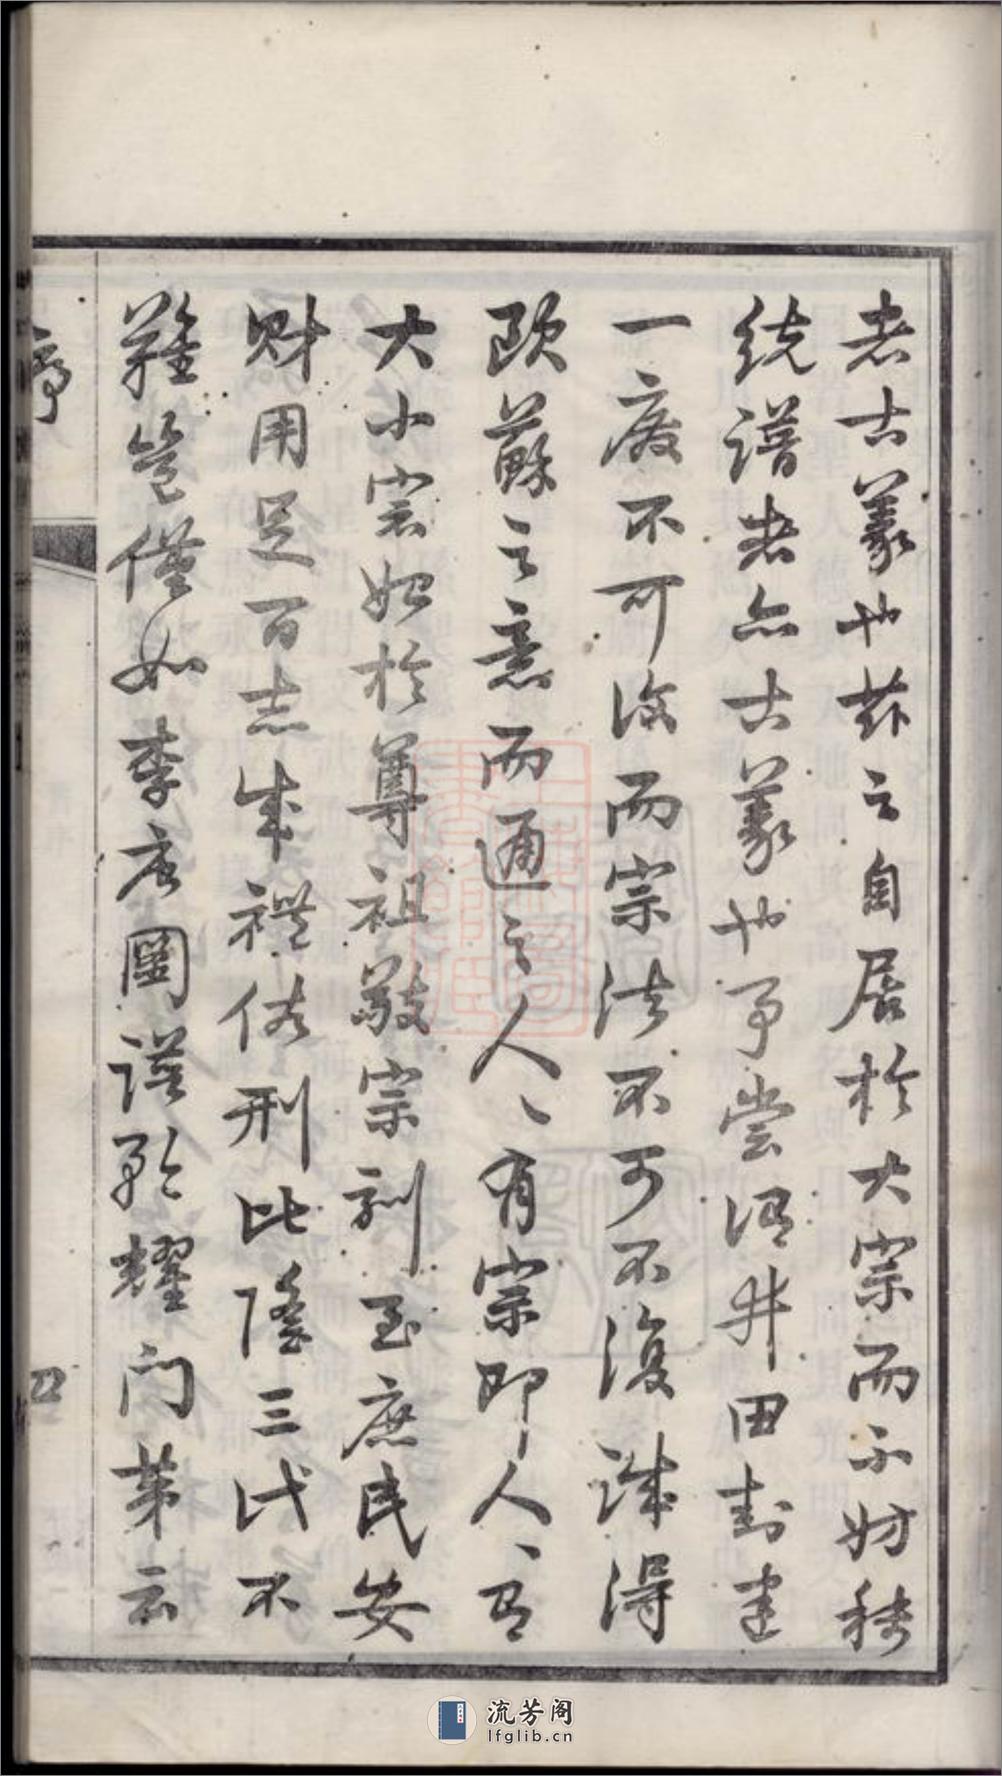 者古義也茲之自居於大宗而不妨稱
統譜者亦古義也予嘗謂井田封建
一廢不可復而宗法不可不復誠得
歐蘇之意而通之人人有宗即人人有
大小宗始於尊祖敬宗訓至庶民安
財用足百志成禮俗刑比隆三代不
難豈僅如李唐圖譜矜耀門第云
序
四
流芳阁
lfglib.cn